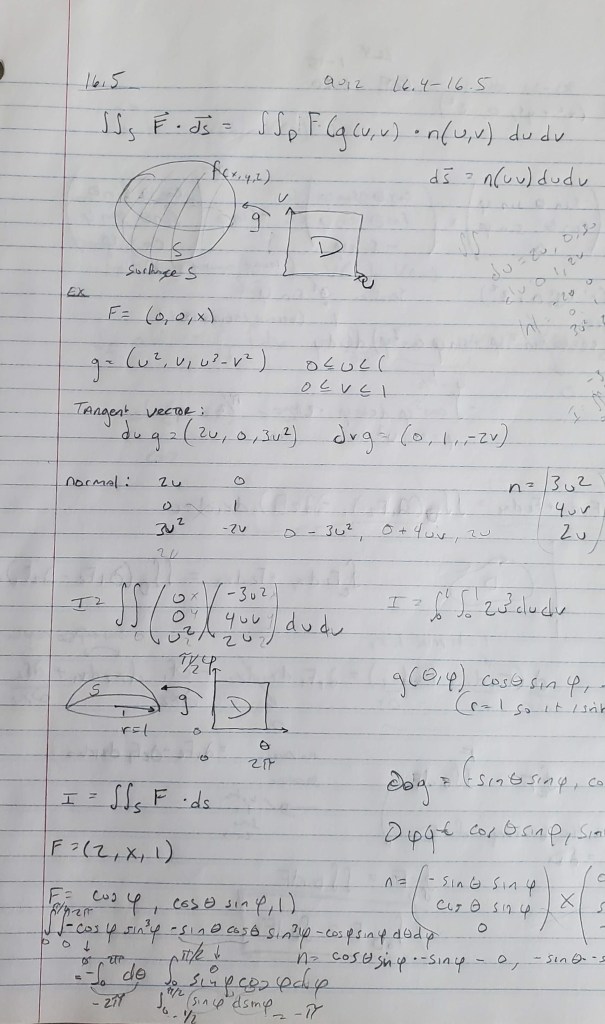 16.5 Quiz 16.4-16.5
∬_S F⃗ · ds⃗ = ∬_D F(g(u,v) · n(u,v) du dv
f(x,y,z) ds⃗ = n(uv) dudv
v g D u
S
Surface S
Ex
F = (0, 0, x)
g = (u², v, u³-v²) 0 ≤ u ≤ 1
0 ≤ v ≤ 1
Tangent vector:
du g = (2u, 0, 3u²) dv g = (0, 1, -2v)
normal: 2u 0 n = (3u²
0 1 4uv
3u² -2v 0 - 3u², 0+4uv, 2u 2u)
2u
I = ∬ (0 0 u²) (-3u² 4uv 2u) dudv I = ∫₀¹ ∫₀¹ 2u³ dudv
π/2 φ
S g D g(θ,φ) cosθ sinφ,
r=1 0 θ (r=1 so it isn't
0 2π
I = ∬_S F · ds ∂θg = (-sinθ sinφ, co
F = (z, x, 1) Dφg = cosθ sinφ, sin
F = cosφ, cosθ sinφ, 1) n = (-sinθ sinφ cosθ sinφ 0) × (
∫₀^π/2 ∫₀^2π -cosφ sin²φ - sinθ cosθ sin²φ - cosφ sinφ dθdφ
n = cosθ sinφ · -sinφ - 0, -sinθ · -s
= -∫₀^2π dθ ∫₀^π/2 sinφ cosφ dφ
-2π ∫₀^π/2 (sinφ dsinφ = -π
-1/2